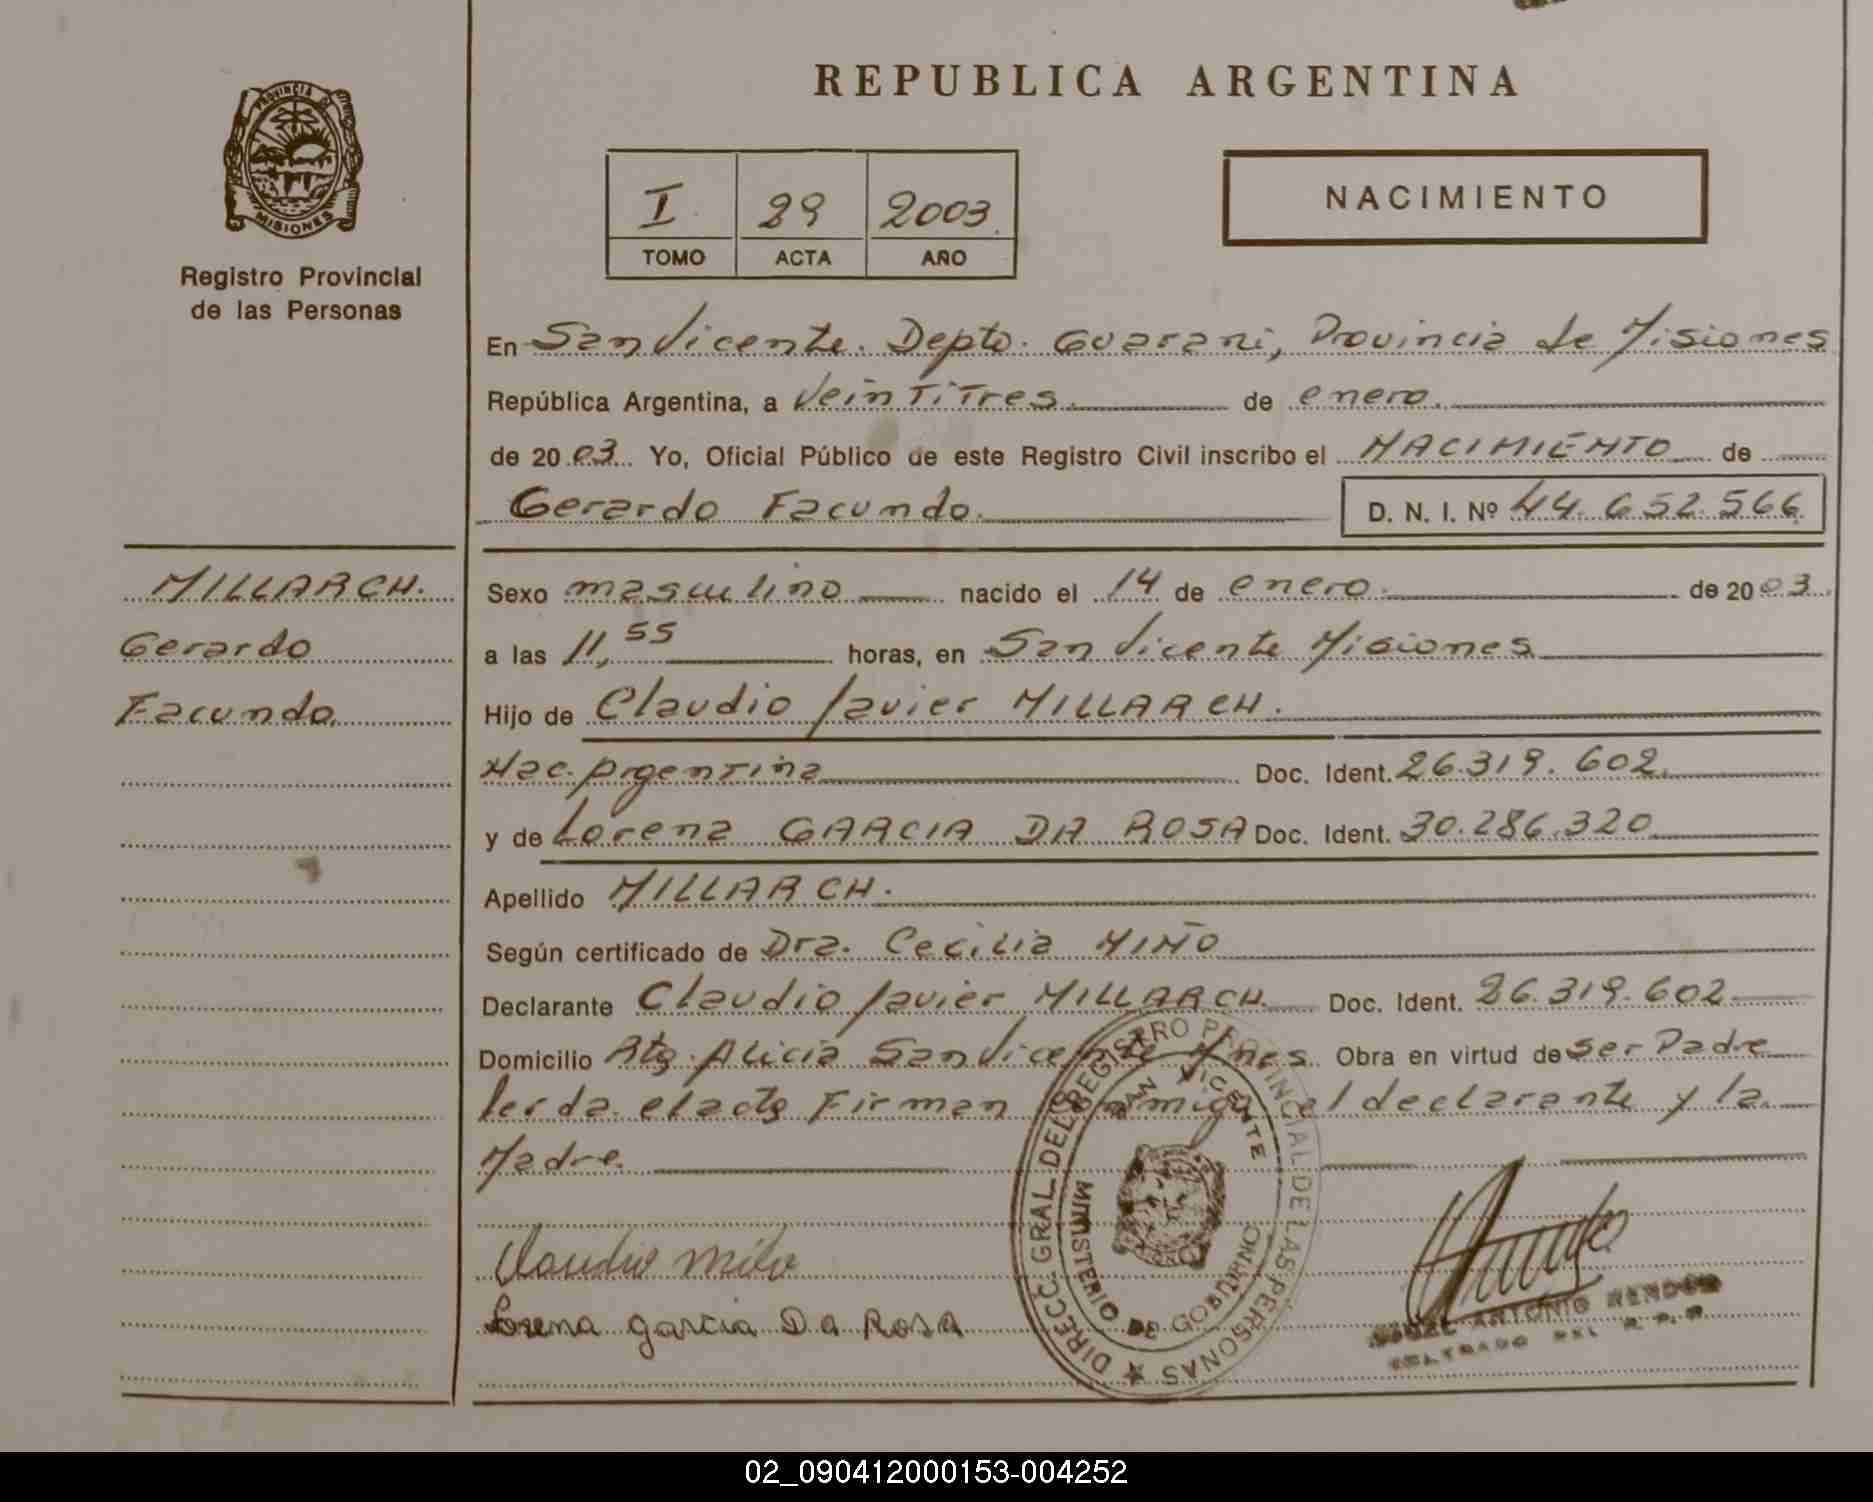 REPUBLICA ARGENTINA
PROVINCIA DE
MISIONES
Registro Provincial
de las Personas
I 29 2003
TOMO ACTA AÑO
NACIMIENTO
En San Vicente. Depto. Guarani, Provincia de Misiones
República Argentina, a Veintitres de enero.
de 2003. Yo, Oficial Público de este Registro Civil inscribo el NACIMIENTO de
Gerardo Facundo. D. N. I. Nº 44.652.566
MILLARCH.
Gerardo
Facundo.
Sexo masculino nacido el 14 de enero. de 2003.
a las 11,55 horas, en San Vicente Misiones
Hijo de Claudio Javier MILLARCH.
Nac. Argentina Doc. Ident. 26.319.602.
y de Lorena GARCIA DA ROSA Doc. Ident. 30.286.320
Apellido MILLARCH.
Según certificado de Dra. Cecilia MIÑO
Declarante Claudio Javier MILLARCH. Doc. Ident. 26.319.602
Domicilio Pto. Alicia San Vicente Mnes. Obra en virtud de ser Padre
leída el acta Firman conmigo el declarante y la
Madre.
Claudio
Lorena garcia Da Rosa
DIRECC. GRAL. DEL REGISTRO PROVINCIAL DE LAS PERSONAS
SAN VICENTE
MINISTERIO DE GOBIERNO
ANTONIO RENDON
02_090412000153-004252